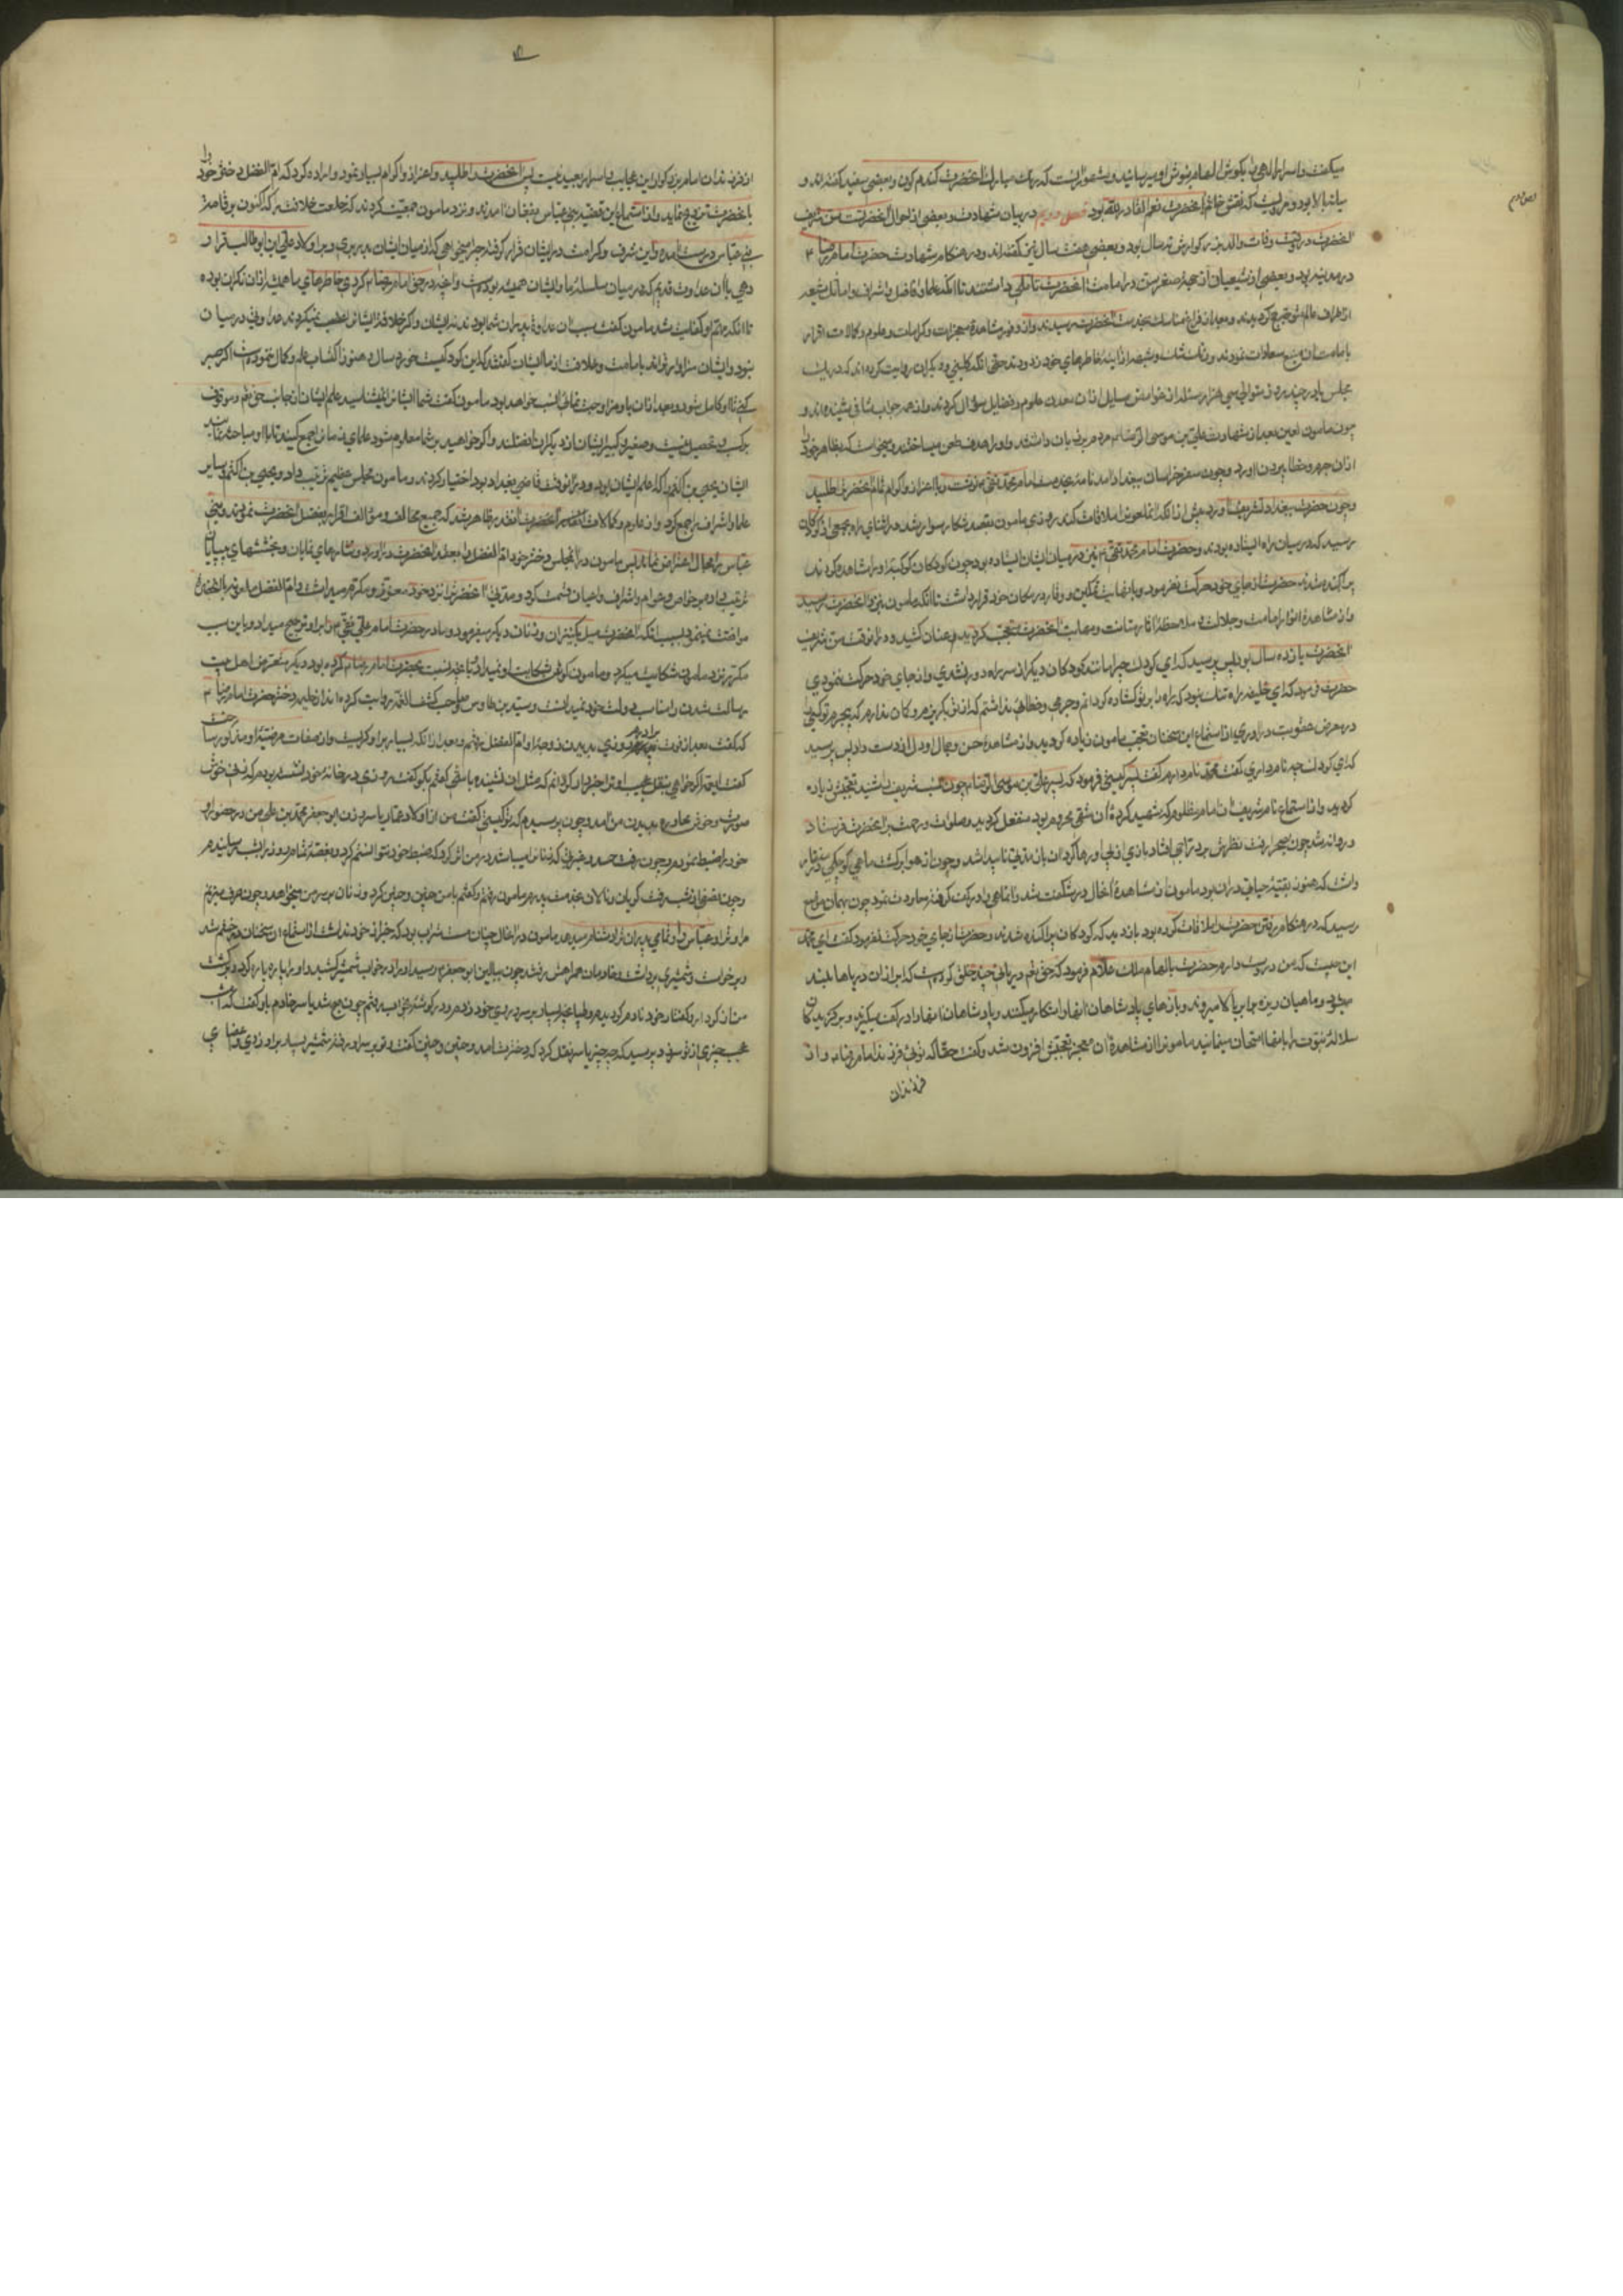 میگفت و اسرار الهی را بگوش الهام نیوش او میرسانید و مشهور آنست که رنگ مبارک آنحضرت گندم گون و بعضی سفید گفته‌اند و
میانه بالا بود و مرویست که نقش خاتم آنحضرت نعم القادر الله بود فصل دویم در بیان شهادت و بعضی از احوال آنحضرتست سن شریف
آنحضرت در وقت وفات والد بزرگوارش نه سال بود و بعضی هفت سال نیز گفته‌اند و در هنگام شهادت حضرت امام رضا
در مدینه بود و بعضی از شیعیان از جهة صغر سن در امامت آنحضرت تأملی داشتند تا آنکه علما و افاضل و اشراف و اماثل شیعه
از اطراف عالم متوجه حج گردیدند و بعد از فراغ مناسک بخدمت آنحضرت رسیدند و از وفور مشاهدهٔ معجزات و کرامات و علوم و کمالات اقرار
بامامت آن منبع سعادات نمودند و زنگ شک و شبهه از آینهٔ خاطرهای خود زدودند حتی آنکه کلینی و دیگران روایت کرده‌اند که در یک
مجلس یا در چند روز متوالی سی هزار مسئله از غوامض مسایل از آن معدن علوم و فضایل سؤال کردند و از همه جواب شافی شنیده‌اند و
چون مامون لعین بعد از شهادت علی بن موسی الرضا مردم بر زبان داشتند و او را هدف طعن میساختند و میخواست که بظاهر خود را
از آن جرم و خطا بیرون آورد و چون از سفر خراسان ببغداد آمد نامهٔ بخدمت امام محمد تقی نوشت و باعزاز و اکرام تمام آنحضرت را طلبید
و چون حضرت ببغداد تشریف آورد پیش از آنکه آنملعون را ملاقات کند روزی مامون بقصد شکار سوار شد در اثنای راه بجمعی از کودکان
رسید که در میان راه ایستاده بودند و حضرت امام محمد تقی نیز در میان ایشان ایستاده بود چون کودکان کوکبهٔ او را مشاهده کردند
پراکنده شدند حضرت از جای خود حرکت نفرمود و با نهایت تمکین و وقار در مکان خود قرار داشت تا آنکه مامون بنزد آنحضرت رسید
و از مشاهدهٔ انوار امامت و جلالت و ملاحظهٔ آثار متانت و مهابت آنحضرت متعجب گردیده عنان کشید و در آنوقت سن شریف
آنحضرت یازده سال بود پس پرسید که ای کودک چرا مانند کودکان دیگر از سر راه دور نشدی و از جای خود حرکت ننمودی
حضرت فرمود که ای خلیفه راه تنگ نبود که راه را بر تو گشاده گردانم و جرمی و خطائی نداشتم که از تو بگریزم و گمان ندارم که بیجرم تو کسی را
در معرض عقوبت در آوری از استماع این سخنان تعجب مامون زیاده گردید و از مشاهدهٔ حسن و جمال او دل از دست داد پس پرسید
که ای کودک چه نام داری گفت محمد نام دارم گفت پسر کیستی فرمود که پسر علی بن موسی الرضا چون نسب شریفش شنید تعجبش زیاده
گردید و از استماع نام شریف آن امام مظلوم که شهید کردهٔ آن شقی محروم بود منفعل گردید و صلوات و رحمت بر آنحضرت فرستاد
و روانه شد چون بصحرا رفت نظرش بر دراجی افتاد بازی از پی او رها کرد آن باز مدتی ناپیدا شد و چون از هوا برگشت ماهی کوچکی در منقار
داشت که هنوز بقیهٔ حیاتی در آن بود مامون از مشاهدهٔ آنحال در شگفت شد و آنماهی را در کف گرفته معاودت نمود چون بهمان موضع
رسید که در هنگام رفتن حضرت را ملاقات کرده بود باز دید که کودکان پراکنده شدند و حضرت از جای خود حرکت نفرمود گفت ای محمد
این چیست که من در دست دارم حضرت بالهام ملک علام فرمود که حق تعالی دریائی چند خلق کرده است که ابر از آن دریاها بلند
میشود و ماهیان ریزه با ابر بالا میروند و بازهای پادشاهان آنها را شکار میکنند و پادشاهان آنها را در کف میگیرند و برگزیدگان
سلالهٔ نبوت را بآنها امتحان مینمایند مامون را از مشاهدهٔ آن معجزه تعجبش افزون شد و گفت حقا که توئی فرزند امام رضا و از
فرزندان
از فرزندان امام بزرگوار این عجایب و اسرار بعید نیست پس آنحضرت را طلبید و اعزاز و اکرام بسیار نمود و اراده کرد که ام الفضل دختر خود را
بآنحضرت تزویج نماید و از استماع این قضیه بنی عباس بفغان آمدند و نزد مامون جمعیت کردند که خلعت خلافت که اکنون بر قامت
بنی عباس درست آمده و این شرف و کرامت در ایشان قرار گرفته چرا میخواهی که از میان ایشان بدر بری و بر اولاد علی ابن ابو طالب قرار
دهی با آن عداوت قدیم که در میان سلسلهٔ ما و ایشان همیشه بوده است و آنچه در حق امام رضا کردی خاطرهای ما همیشه از آن نگران بوده
تا آنکه مهم او کفایت شد مامون گفت سبب آن عداوة پدران شما بودند
نبود و ایشان سزاوارتراند بامامت و خلافت از ما ایشان گفتند که این کودکیست خورد سال و هنوز اکتساب علم و کمال ننموده است اگر صبر
کنی تا او کامل شود و بعد از آن باو مزاوجت نمائی انسب خواهد بود مامون گفت شما ایشان را نمیشناسید علم ایشان از جانب حق تعالی است و موقوف
بر کسب و تحصیل نیست و صغیر و کبیر ایشان از دیگران افضلند و اگر خواهید بر شما معلوم شود علمای زمان را جمع کنید تا با او مباحثه نمایند
ایشان یحیی بن اکثم را که اعلم ایشان بود و در آنوقت قاضی بغداد بود اختیار کردند و مامون مجلس عظیم ترتیب داد و یحیی بن اکثم و سایر
علما و اشراف را جمع کرد و از علوم و کمالات آنحضرت آنقدر ظاهر شد که جمیع مخالف و مؤالف اقرار بفضل آنحضرت نمودند و بنی
عباس را مجال اعتراض نماند پس مامون در آنمجلس دختر خود ام الفضل را بعقد آنحضرت در آورد و نثارهای نمایان و بخششهای بیپایان
ترتیب داد و بر خواص و عوام و اشراف و اعیان قسمت کرد و مدتی آنحضرت را نزد خود معزز و مکرم میداشت و ام الفضل با آنحضرة
موافقت نمینمود بسبب آنکه آنحضرت میل بکنیزان و زنان دیگر میفرمود و مادر حضرت امام علی نقی را بر او ترجیح میداد و باین سبب
مکرر نزد مامون شکایت میکرد و مامون گوش بشکایت او نمیداد تا آنچه نسبت بحضرت امام رضا کرده بود و دیگر متعرض اهل بیت
رسالت شدن را مناسب دولت خود نمیدانست و سید بن طاوس و صاحب کشف الغمه روایت کرده‌اند از حکیمه دختر حضرت امام رضا
که گفت بعد از فوت برادرم روزی بدیدن زوجهٔ او ام الفضل رفتم
خود را ضبط نمودم و چون رفت حسد و غیرتی که زنان را میباشد در من اثر کرد که ضبط خود نتوانستم کرد و بغصه تمام روز را بشب رسانیدم
و چون نصفی از شب رفت گریان و نالان بخدمت پدرم مامون رفتم و گفتم با من چنین و چنین کرد و زنان بر سر من میخواهد و چون حرف میزنم
مرا و ترا و عباس را و تمامی پدران ترا دشنام میدهد مامون در آنحال چنان مست شراب بود که خبر از خود نداشت از استماع این سخنان در خشم شد
و برخواست و شمشیری برداشت و خادمان همراهش رفتند چون ببالین ابو جعفر رسید او را در خواب شمشیر کشید و او را پاره پاره کرد و برگشت
عجب چیزی از تو سر زد پرسید که چه چیز یاسر نقل کرد که دخترت آمد و چنین و چنین گفت و تو بر سر او رفتی